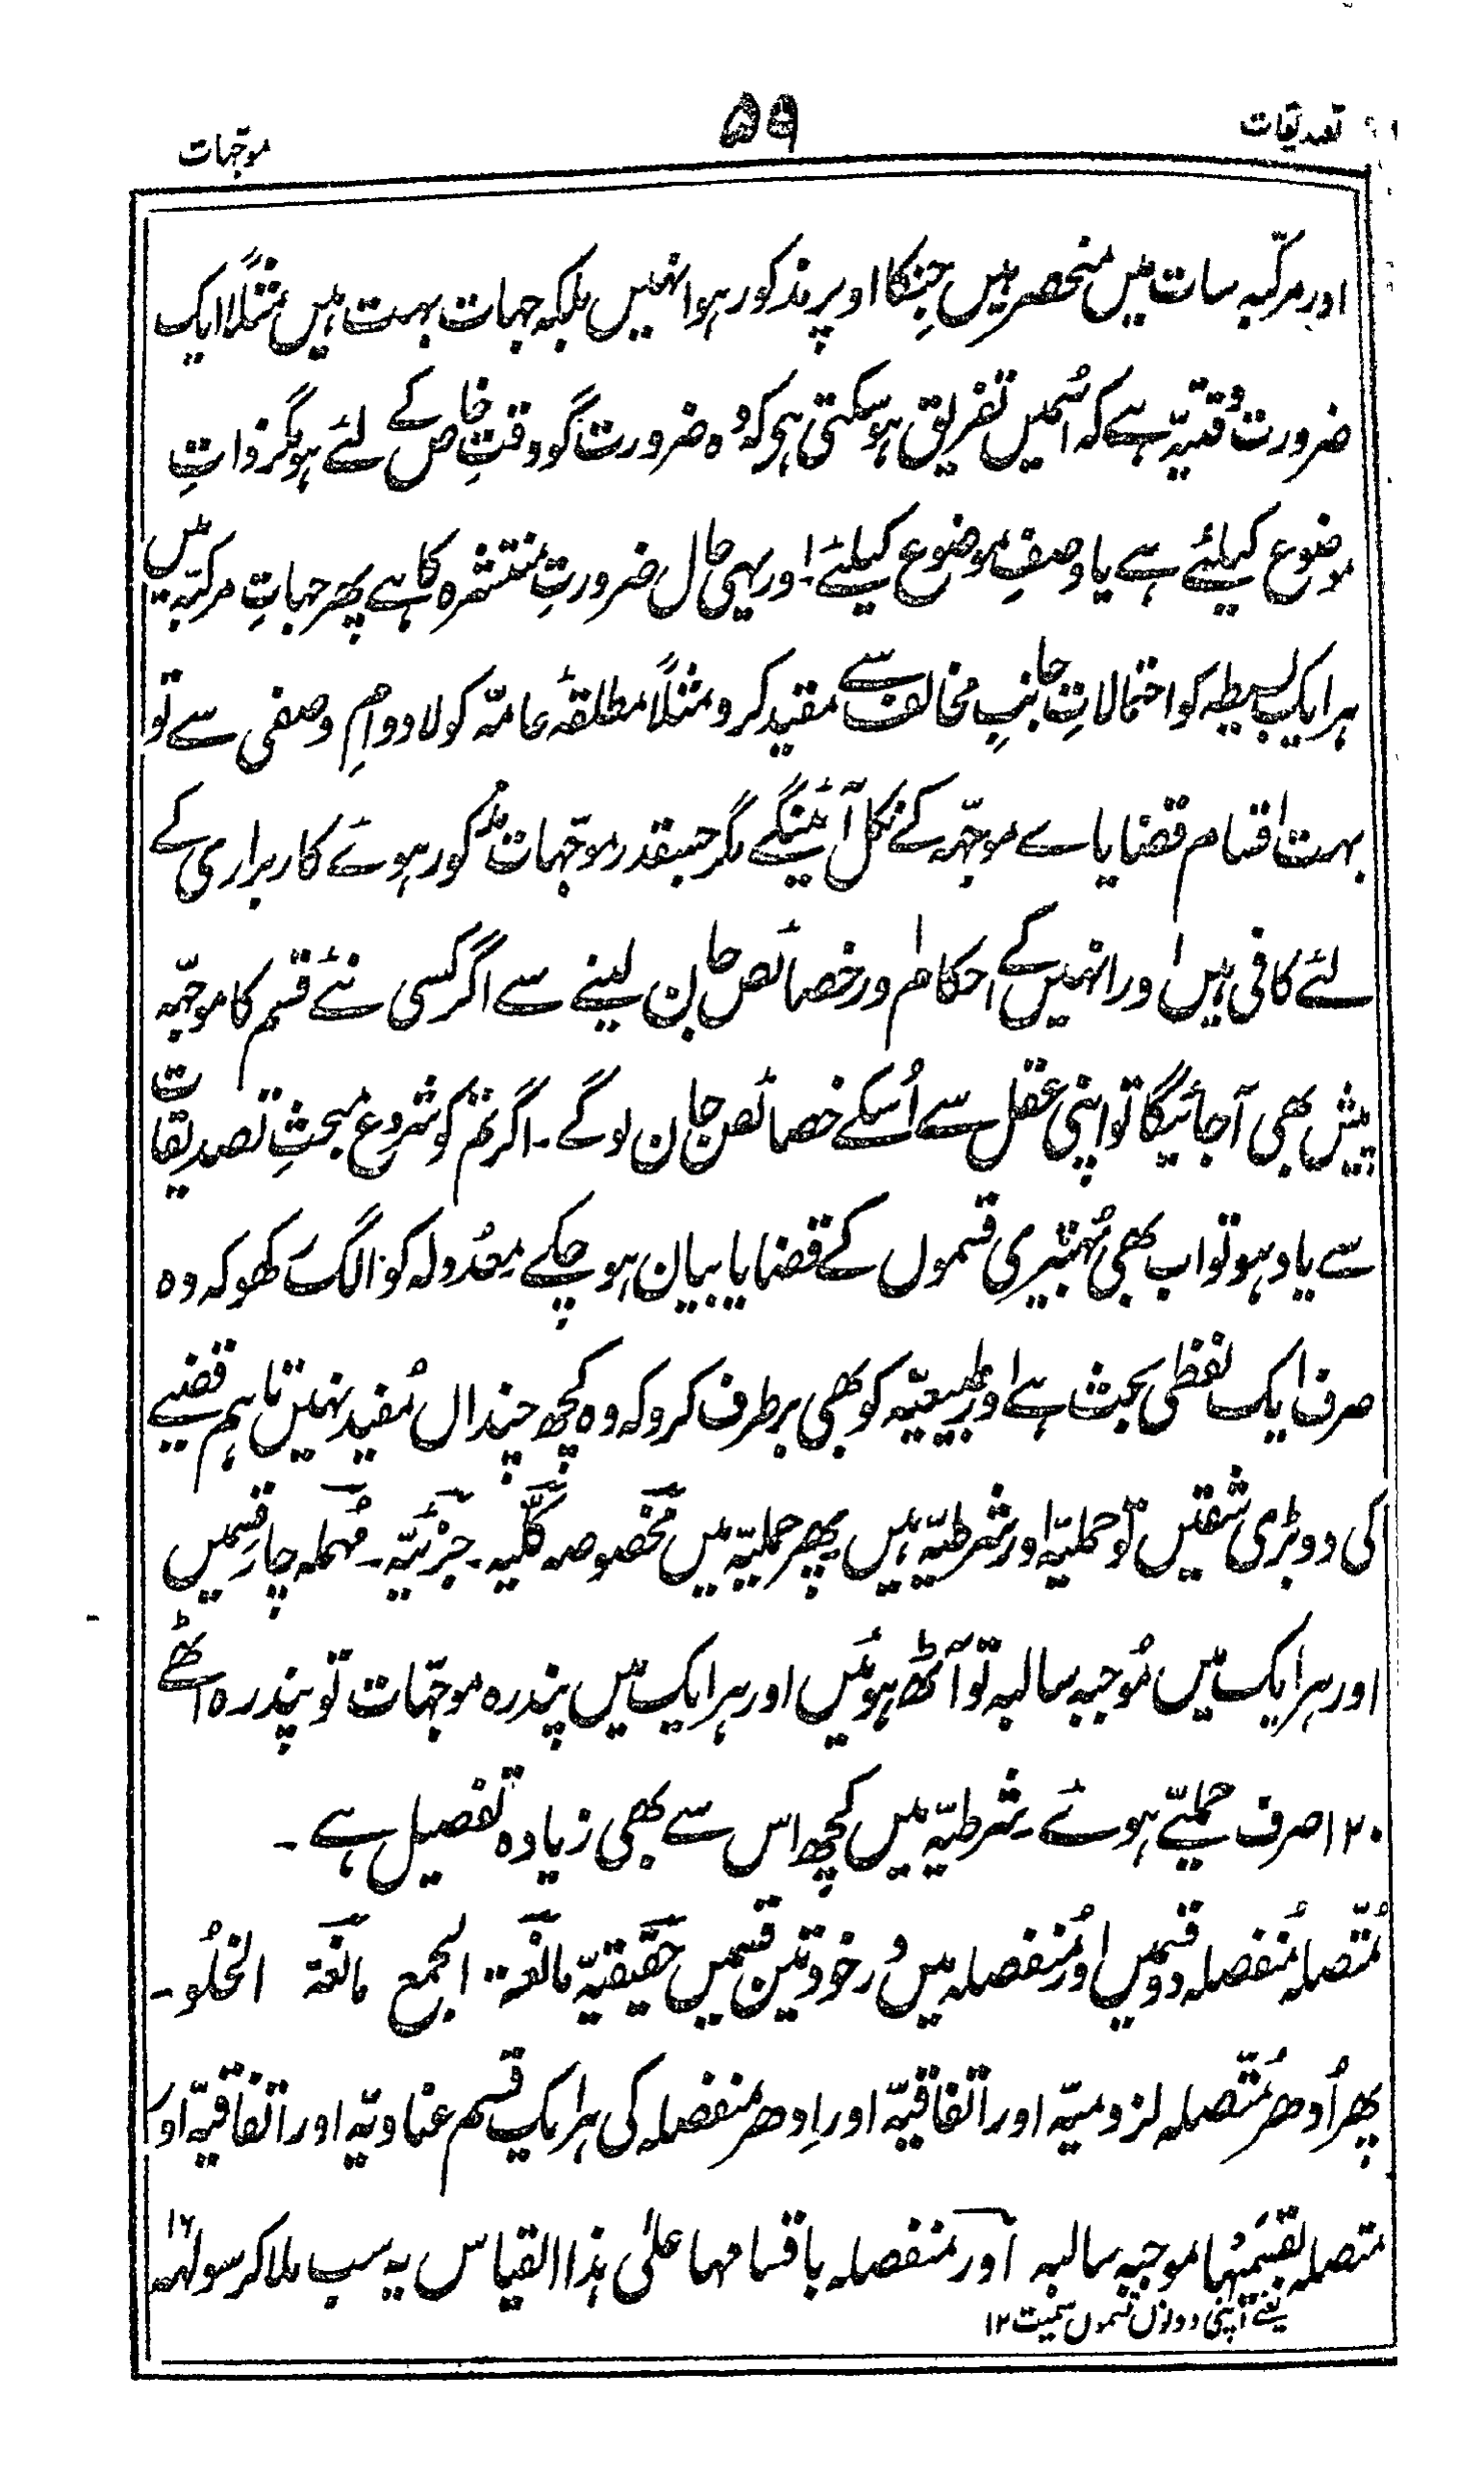 تصدیقات
۵۹
موجّہات
اور مرکبّہ سات میں منحصر ہیں جنکا اوپر مذکور ہوا نہیں بلکہ جہات بہت ہیں مثلًا ایک
ضرورت وقتیّہ ہے کہ اُسمیں تفریق ہو سکتی ہی کہ وُہ ضرورت گو وقتِ خاص کے لئے ہو مگر ذاتِ
موضوع کیلئے ہے یا وصفِ موضوع کیلئے۔ اور یہی حال ضرورتِ منتشرہ کا ہے پھر جہاتِ مرکبّہ میں
ہر ایک بسیطہ کو احتمالاتِ جانبِ مخالف سے مقید کرو مثلًا مطلقۂ عامّہ کو لا دوامِ وصفی سے تو
بہت اقسام قضایاے موجّہہ کے نکل آئینگے مگر جسقدر موجّہات مذکور ہوئے کاربراری کے
لئے کافی ہیں اور انہیں کے احکام اور خصائص جان لینے سے اگر کسی نئے قسم کا موجّہہ
پیش بھی آجائیگا تو اپنی عقل سے اُسکے خصائص جان لوگے۔ اگر تم کو شروع مبحثِ تصدیقات
سے یاد ہو تو اب بھی بُہتیری قسموں کے قضایا بیان ہو چکے معدُولہ کو الگ رکھو کہ وہ
صرف ایک لفظی بحث ہے اور طبیعیّہ کو بھی برطرف کرو کہ وہ کچھ چنداں مُفید نہیں تاہم قضیے
کی دو بڑی شقیں تو حملیّہ اور شرطیّہ ہیں پھر حملیّہ میں مخصوصہ کلّیہ۔ جزئیّہ۔ مُہملہ چار قِسمیں
اور ہر ایک میں مُوجبہ سالبہ تو آٹھ ہوئیں اور ہر ایک میں پندرہ موجّہات تو پندرہ اٹھے
۱۲۰ صرف حملیّے ہوئے۔ شرطیّہ میں کچھ اس سے بھی زیادہ تفصیل ہے۔
مُتّصلہ مُنفصلہ دو قسمیں اور مُنفصلہ میں وُر خود تین قسمیں حقیقیّہ مانعۃ الجمع مانعۃ الخلُو۔
پھر اُدھر مُتّصلہ لزومیّہ اور اتّفاقیّہ اور اِدھر منفصلہ کی ہر ایک قسم عنادیّہ اور اتفاقیّہ اور
متصلہ بقسیمَیْہا موجبہ سالبہ اور منفصلہ باقسامہا علیٰ ہذا القیاس یہ سب ملاکر سولہ ۱۶
یعنے اپنی دونوں قسموں سمیت ۱۲